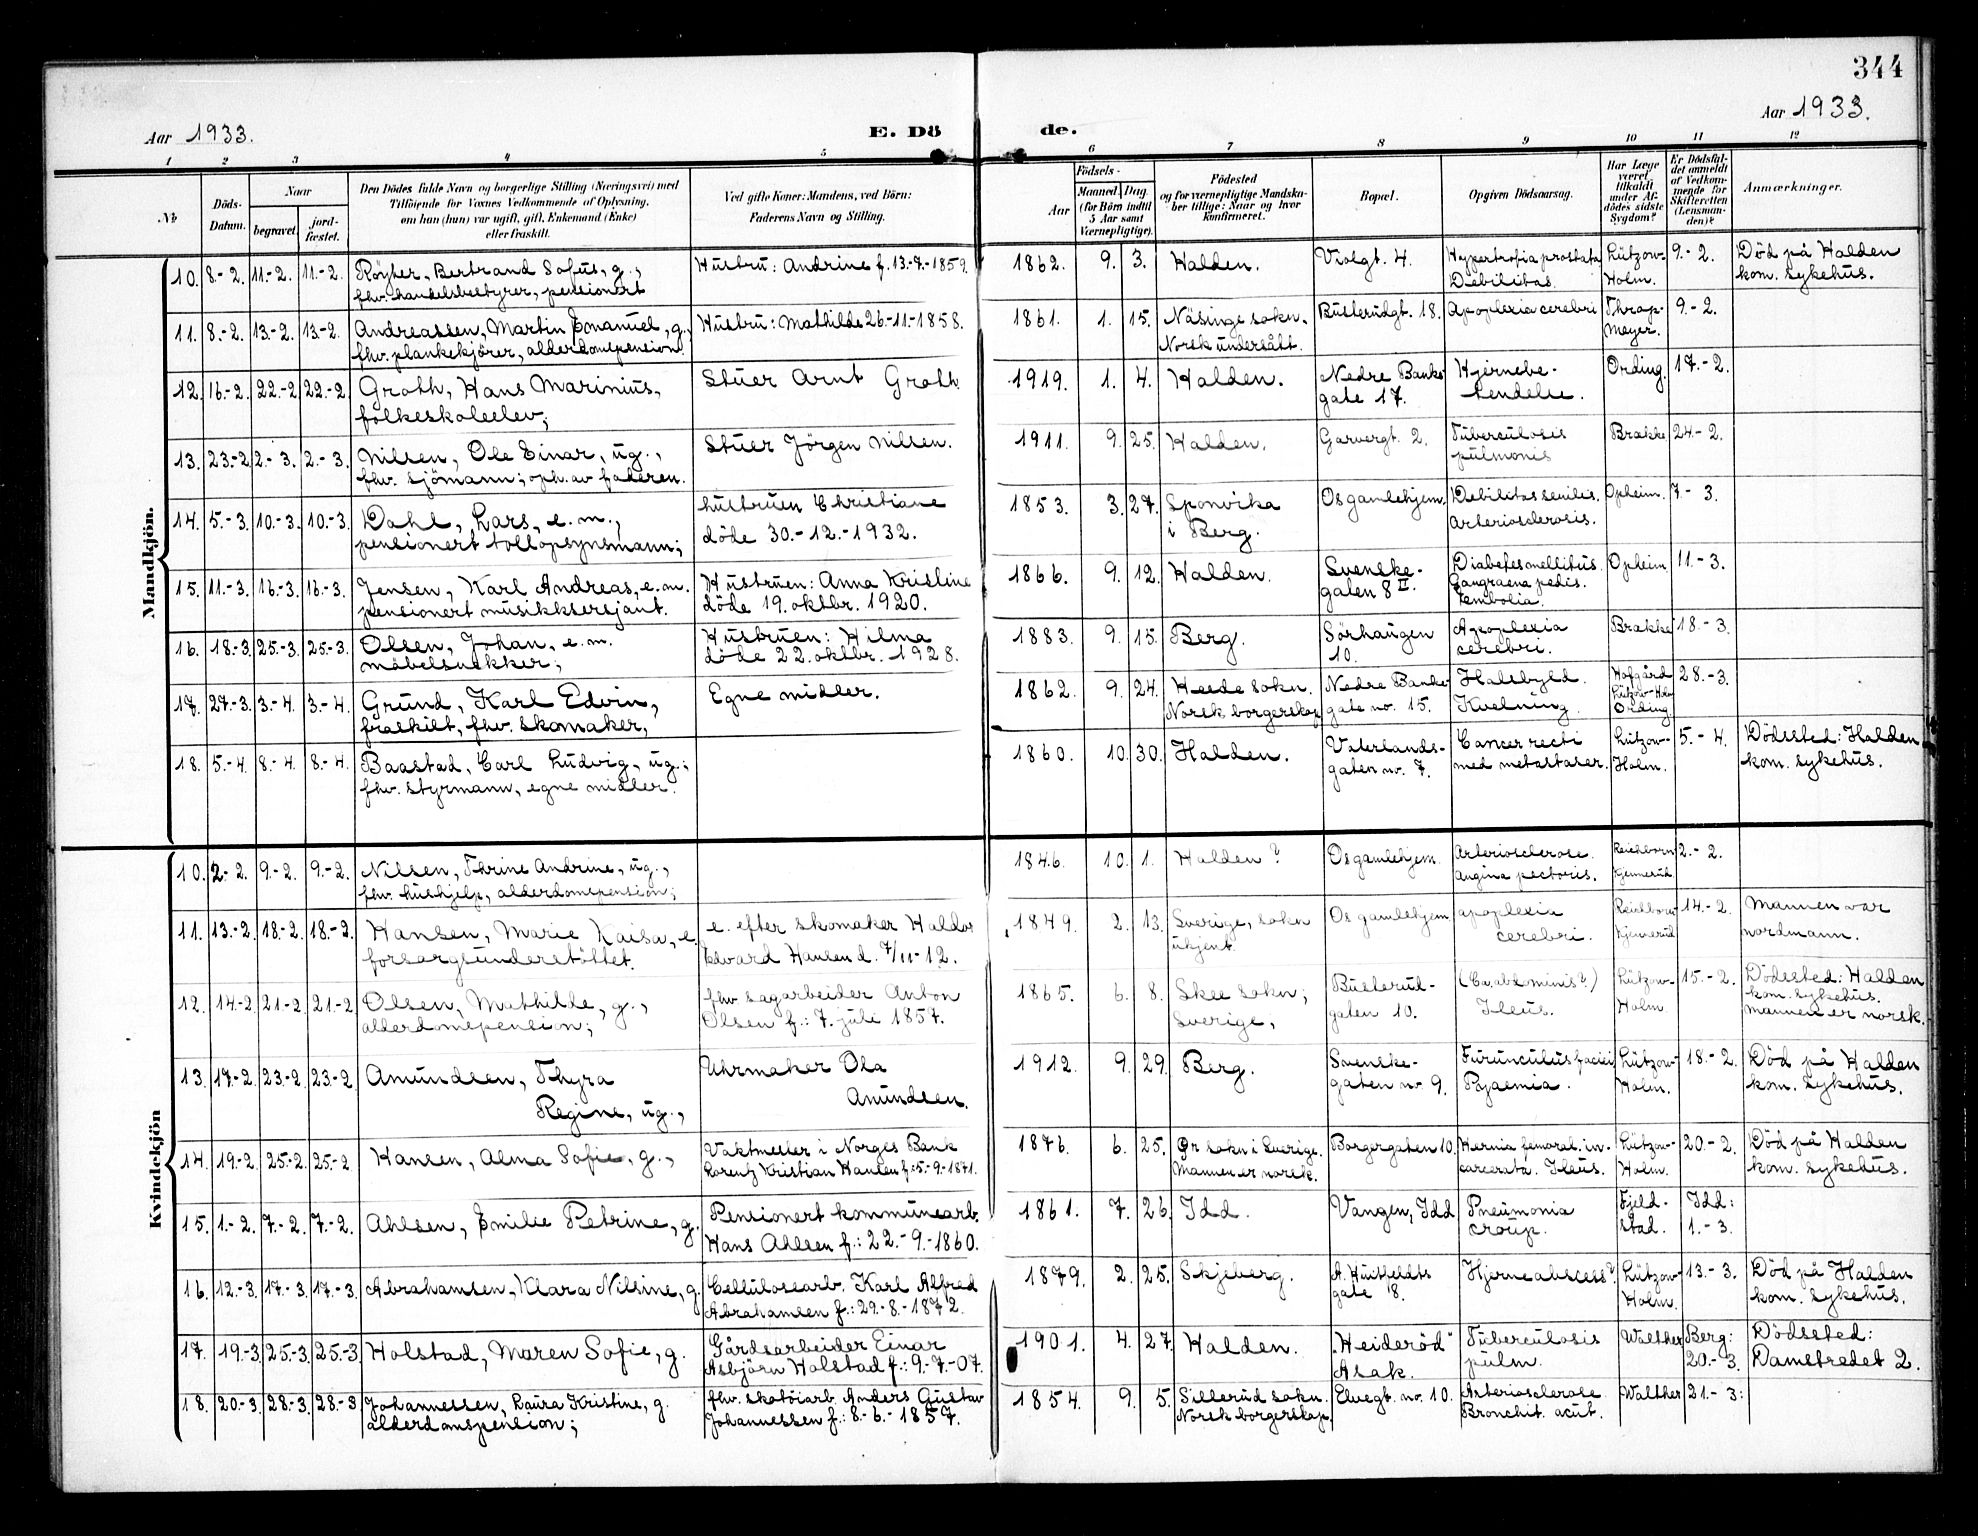 344
Aar 1933.
E. Dö
de.
Aar 1933.
1 2 3 4 5 6 7 8 9 10 11 12
№
Döds-Datum.
Naar
begravet.
jord-fæstet.
Den Dödes fulde Navn og borgerlige Stilling (Næringsvei) med
Tilföiende for Voxnes Vedkommende af Oplysning,
om han (hun) var ugift, gift, Enkemand (Enke)
eller fraskilt.
Ved gifte Koner: Mandens, ved Börn:
Faderens Navn og Stilling.
Födsels-
Aar
Maaned. Dag.
(for Börn indtil
5 Aar samt
Værnepligtige).
Födested
og for værnepligtige Mandska-
ber tillige: Naar og hvor
konfirmeret.
Bopæl.
Opgiven Dödsaarsag.
Har Læge
været
tilkaldt
under Af-
dödes sidste
Sygdom?
Er Dödsfal-
det anmeldt
af Vedkom-
mende for
Skifteretten
(Lensman-
den)?
Anmærkninger.
Mandkjön.
10. 8.-2. 11.-2. 11.-2. Röyter, Bertrand Sofus, g., Hustru: Andrine f. 13.-7.-1859. 1862. 9. 3. Halden. Violgt. 4. Hypertrofia prostata Lützow- 9.-2. Död på Halden
fhv. handelsbestyrer, pensionert Debilitas. Holm. kom. sykehus.
11. 8.-2. 13.-2. 13.-2. Andreassen, Martin Emanuel, g., Hustru: Mathilde 26.-11.-1858. 1861. 1. 15. Näsinge sokn. Busterudgt. 18. Apoplexia cerebri Thrap- 9.-2.
fhv. plankekjörer, alderdomspension. Norsk undersått. Meyer.
12. 16.-2. 22.-2. 22.-2. Groth, Hans Marinius, Stuer Arnt Groth 1919. 1. 4. Halden. Nedre Banke- Hjernebe- Ording. 17.-2.
folkeskoleelev; gate 17. tendelse.
13. 23.-2. 2.-3. 2.-3. Nilsen, Ole Einar, ug., Stuer Jörgen Nilsen. 1911. 9. 25. Halden. Garvergt. 2. Tuberculosis Brække 24.-2.
fhv. sjömann; oph. av faderen. pulmonis
14. 5.-3. 10.-3. 10.-3. Dahl, Lars, e.m., hustruen Christiane 1853. 3. 27. Sponvika Os gamlehjem. Debilitas senilis. Opheim. 7.-3.
pensionert tollopsynsmann; döde 30.-12.-1932. i Berg. Arteriosclerosis.
15. 11.-3. 16.-3. 16.-3. Jensen, Karl Andreas, e.m. Hustruen: Anna Kristine 1866. 9. 12. Halden. Svenske- Diabetes mellitus. Opheim 11.-3.
pensionert musikksersjant. döde 19. oktbr. 1920. gaten 8 II. Gangraena pedis.
Embolia.
16. 18.-3. 25.-3. 25.-3. Olsen, Johan, e.m. Hustruen: Hilma 1883. 9. 15. Berg. Sörhaugen Apoplexia Brække 18.-3.
möbelsnekker; döde 22. oktbr. 1928. 10. cerebri.
17. 27.-3. 3.-4. 3.-4. Grund, Karl Edvin, Egne midler. 1862. 9. 24. Heede sokn. Nedre Banke- Halsbyld. Hofgård 28.-3.
fraskilt, fhv. skomaker, Norsk borgerskap gate no. 15. Kvelning. Lützow-Hol Ording
18. 5.-4. 8.-4. 8.-4. Baastad, Carl Ludvig, ug.; 1860. 10. 30. Halden. Vaterlands- Cancer recti Lützow- 5.-4. Dödssted: Halden
fhv. styrmann, egne midler. gaten nr. 7. med metastaser. Holm. kom. sykehus.
Kvindekjön
10. 2.-2. 9.-2. 9.-2. Nilsen, Thrine Andrine, ug., 1846. 10. 1. Halden? Os gamlehjem. Arteriosclerose. Reichborn 2.-2.
fhv. hushjelp, alderdomspension; Angina pectoris. Kjennerud
11. 13.-2. 18.-2. 18.-2. Hansen, Marie Kaisa, e. e. efter skomaker Haldor 1849. 2. 13. Sverige, sokn Os gamlehjem apoplexia Reichborn 14.-2. Mannen var
forsorgsunderstöttet. Edvard Hansen d. 7/11-12. ukjent. cerebri. Kjennerud nordmann.
12. 14.-2. 21.-2. 21.-2. Olsen, Mathilde, g., fhv sagarbeider Anton 1865. 6. 8. Skee sokn; Busterud- (Ca. abdominis?) Lützow- 15.-2. Dödssted: Halden
alderdomspension; Olsen f.: 7. juli 1857. Sverige; gaten 10. Ileus. Holm. kom. sykehus.
Mannen er norsk.
13. 17.-2. 23.-2. 23.-2. Amundsen, Thyra Uhrmaker Ola 1912. 9. 29. Berg. Svenske- Furunculus faciei Lützow- 18.-2. Död på Halden
Regine, ug., Amundsen. gaten nr 9. Pyaemia. Holm. kom. sykehus.
14. 19.-2. 25.-2. 25.-2. Hansen, Alma Sofie, g., Vaktmester i Norges Bank 1876. 6. 25. Ör sokn i Sverige. Borgergaten 10. Hernia femoral. in- Lützow- 20.-2. Död på Halden
Lorentz Kristian Hansen f.: 5.-9.-1871. Mannen er norsk. carcerata. Ileus. Holm. kom. sykehus.
15. 1.-2. 7.-2. 7.-2. Ahlsen, Emilie Petrine, g. Pensionert kommunearb. 1861. 7. 26. Idd. Vangen, Idd Pneumonia Fjeld- Idd:
Hans Ahlsen f.: 22.-9.-1860. croup. stad. 1.-3.
16. 12.-3. 17.-3. 17.-3. Abrahamsen, Klara Nilsine, g. Cellulosearb. Karl Alfred 1879. 2. 25. Skjeberg. A. Huitfeldts Hjerneabscess? Lützow- 13.-3. Död på Halden
Abrahamsen f.: 29.-8.-1872. gate 8. Holm. kom. sykehus.
17. 19.-3. 25.-3. 25.-3. Holstad, Maren Sofie, g. Gårdsarbeider Einar 1901. 4. 27. Halden. "Heideröd" Tuberculosis Walther Berg: Dödssted:
Asbjörn Holstad f.: 9.-7.-07. Asak. pulm. 20.-3. Damstredet 2.
18. 20.-3. 28.-3. 28.-3 Johannessen, Laura Kristine, g. fhv. skotöiarb. Anders Gustav 1854. 9. 5. Sillerud sokn. Elvegt. no. 10. Arteriosclerose Walther 21.-3.
alderdomspension; Johannessen f.: 8.-6.-1857. Norsk borgerskap. Bronchit. acut.